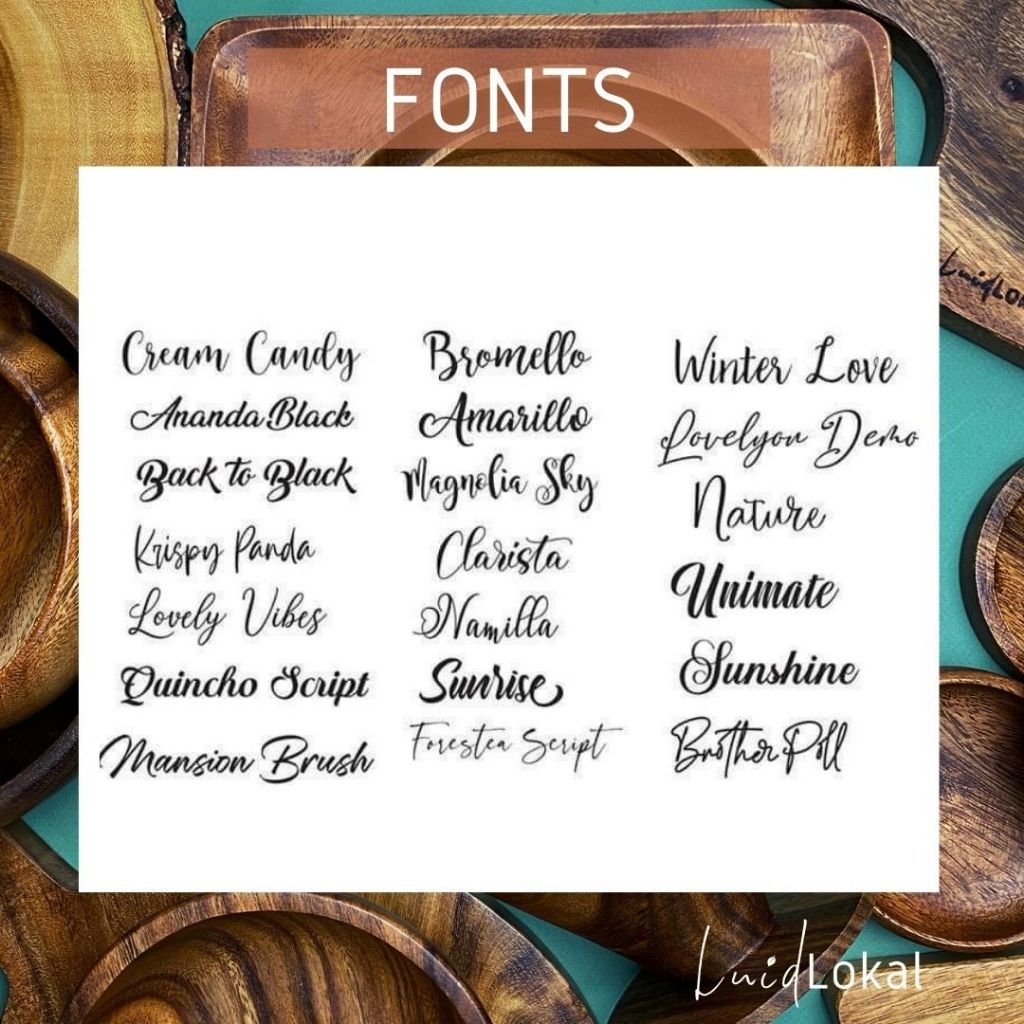 FONTS
Cream Candy
Ananda Black
Back to Black
Krispy Panda
Lovely Vibes
Quincho Script
Mansion Brush
Bromello
Amarillo
Magnolia Sky
Clarista
Namilla
Sunrise
Forestea Script
Winter Love
Lovelyou Demo
Nature
Unimate
Sunshine
Brother Poll
LuidLo
LuidLokal